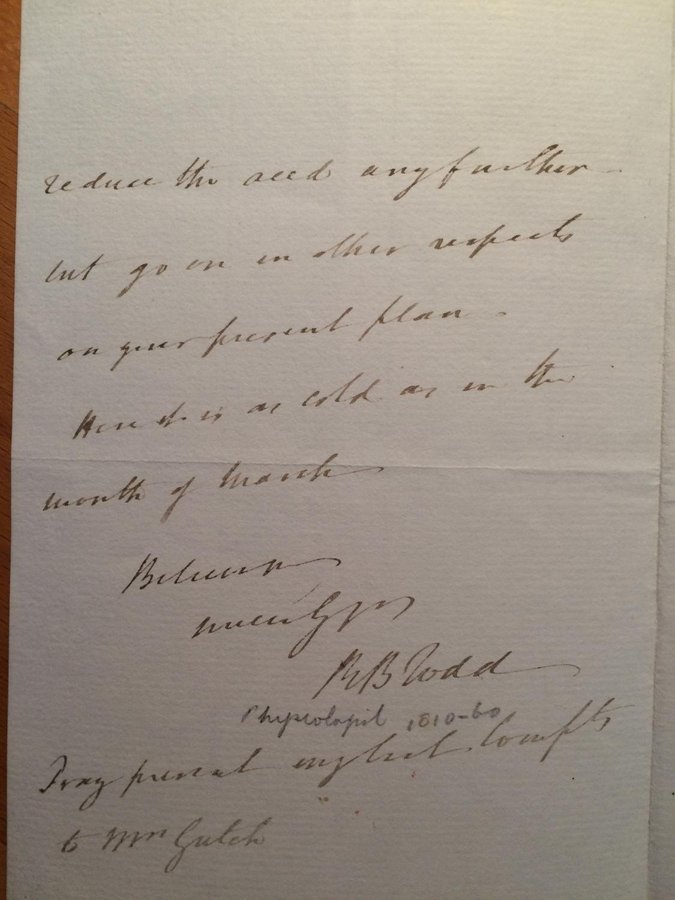 reduce the acid any further -
but go on in other respects
on your present plan -
Here it is as cold as in the
month of March
Believe me
yrs
RB Todd
Physiologist 1810-60
Pray present my best Compts
to Mrs Gutch